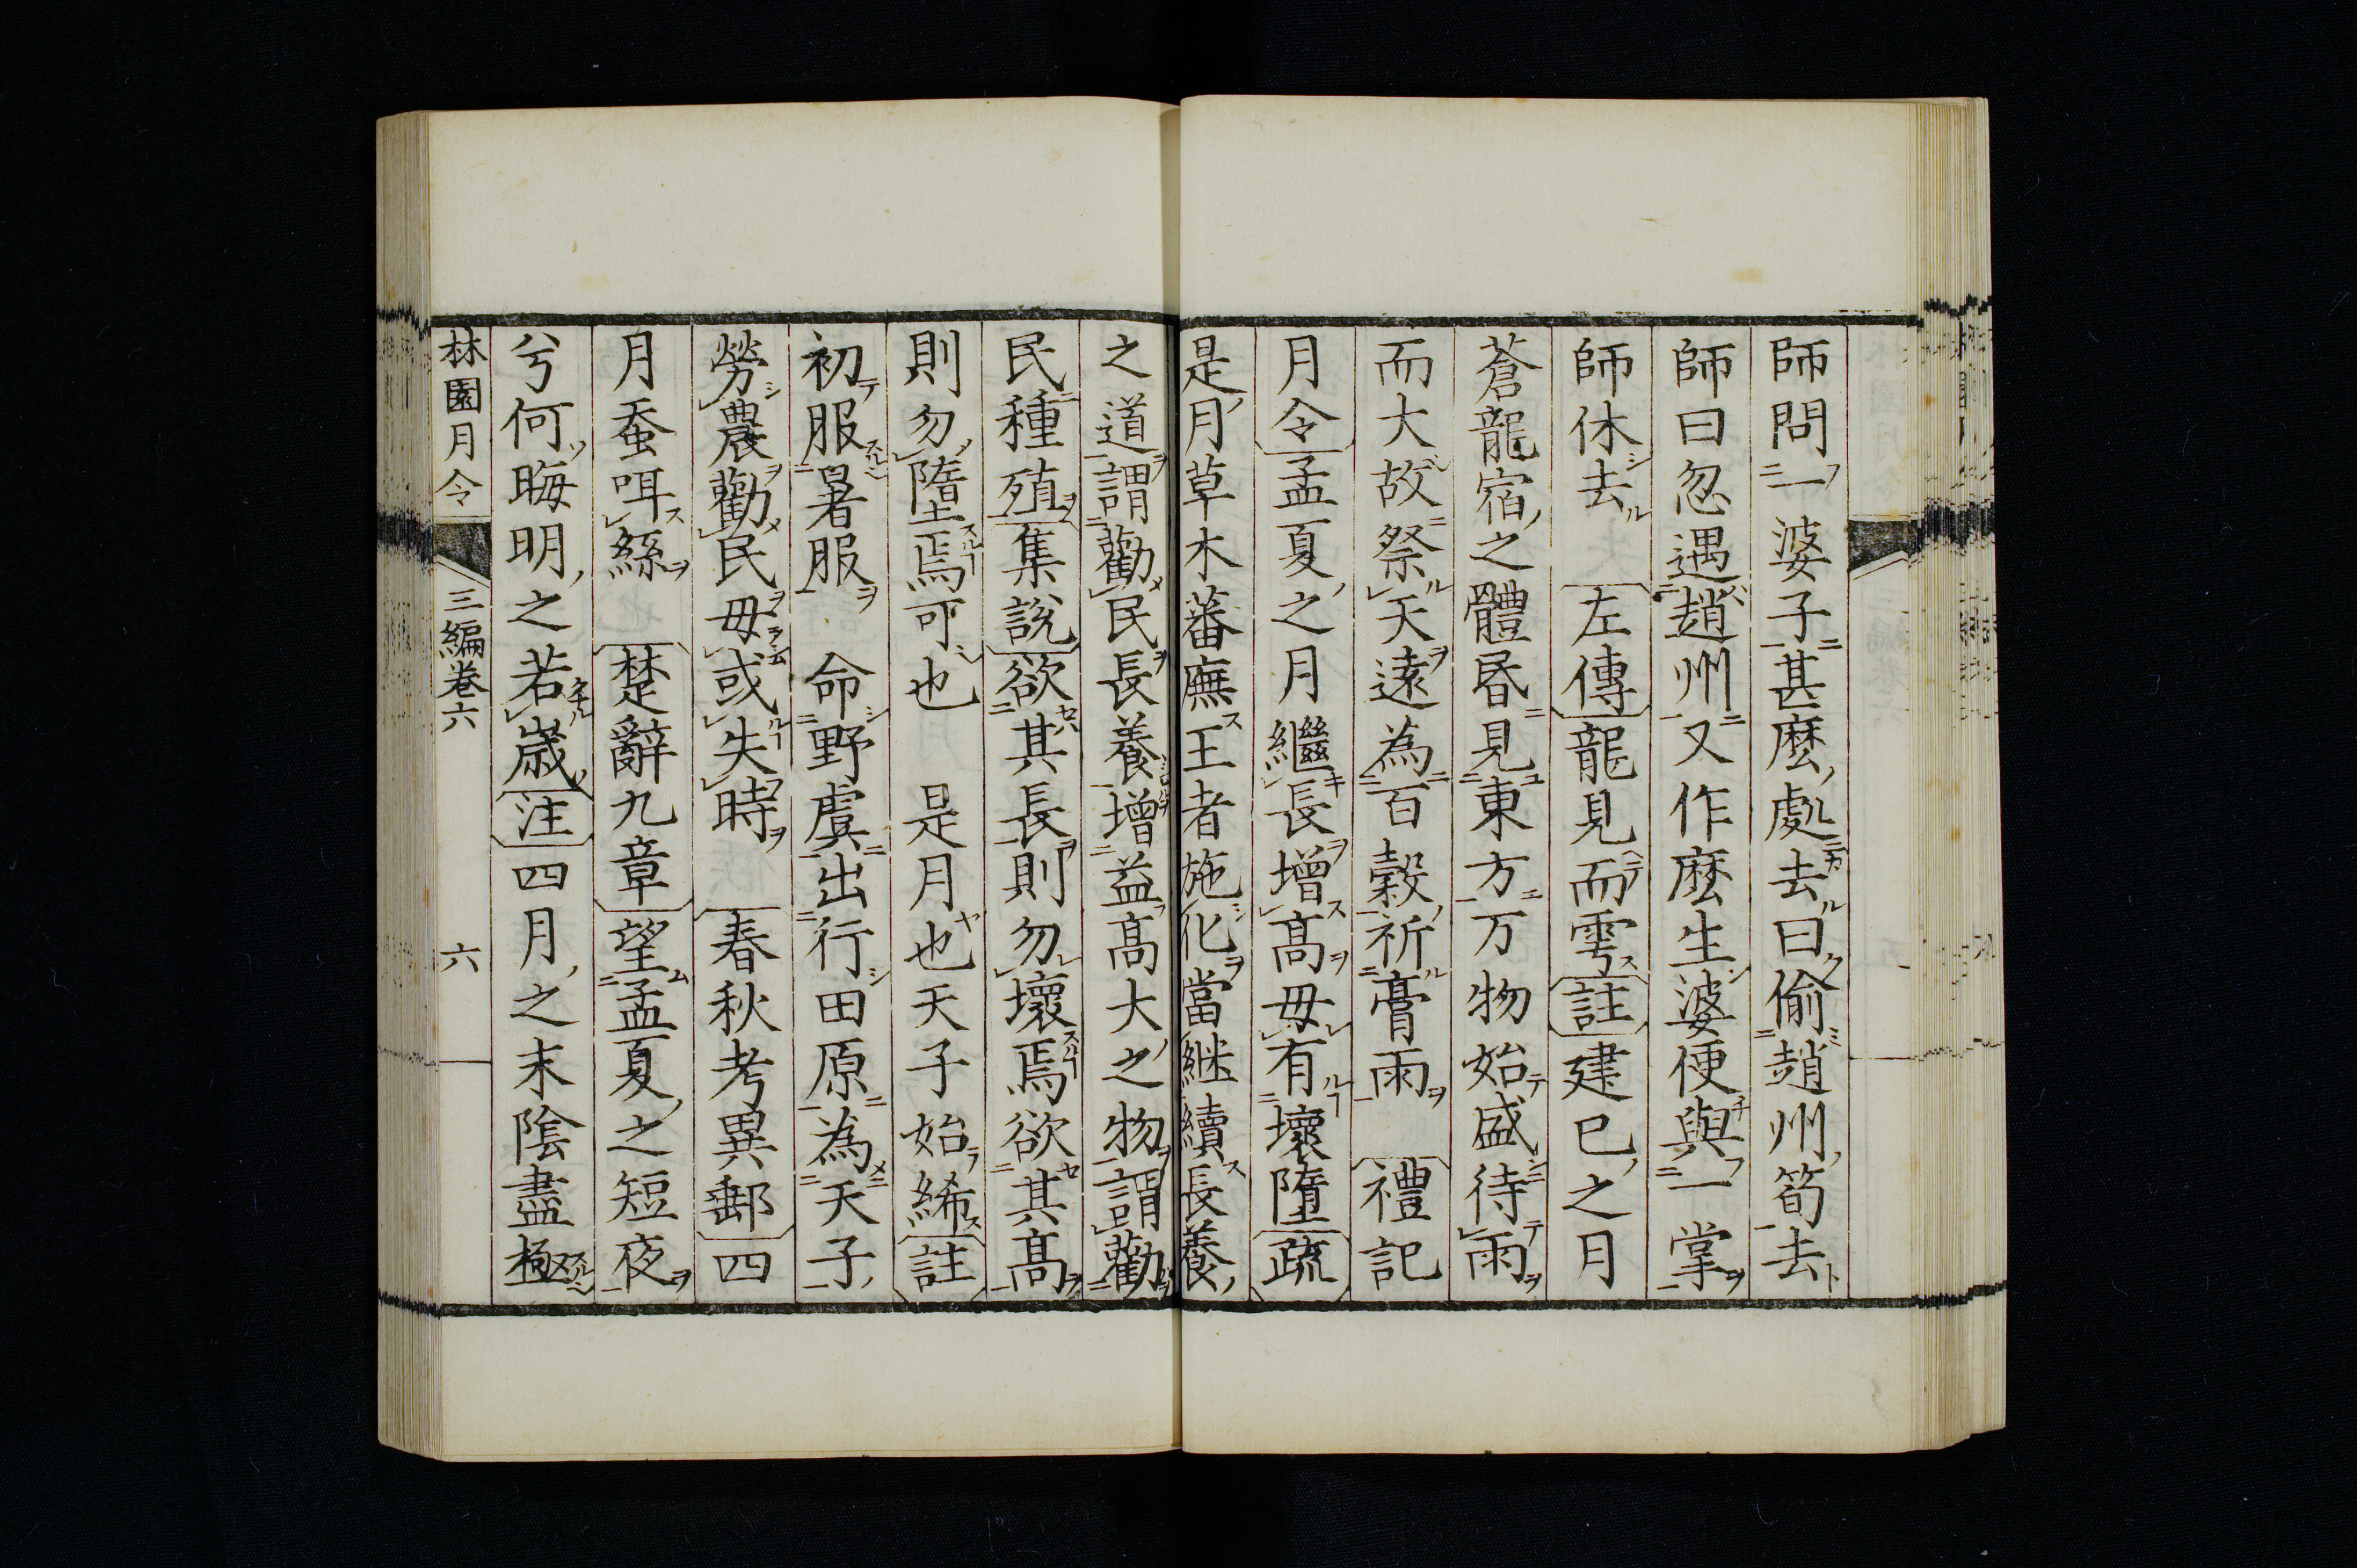 師問一婆子甚麼處去曰偷趙州筍去
師曰忽遇趙州又作麼生婆便與一掌
師休去 左傳龍見而雩註建巳之月
蒼龍宿之體昏見東方万物始盛待雨
而大故祭天遠為百穀祈膏雨 禮記
月令孟夏之月繼長增高毋有壞墮疏
是月草木蕃廡王者施化當継續長養
之道謂勸民長養增益高大之物謂勸
民種殖集說欲其長則勿壞焉欲其高
則勿墮焉可也 是月也天子始絺註
初服暑服 命野虞出行田原為天子
勞農勸民毋或失時 春秋考異郵四
月蚕咡絲 楚辭九章望孟夏之短夜
兮何晦明之若歲注四月之末陰盡極
林園月令 三編卷六 六